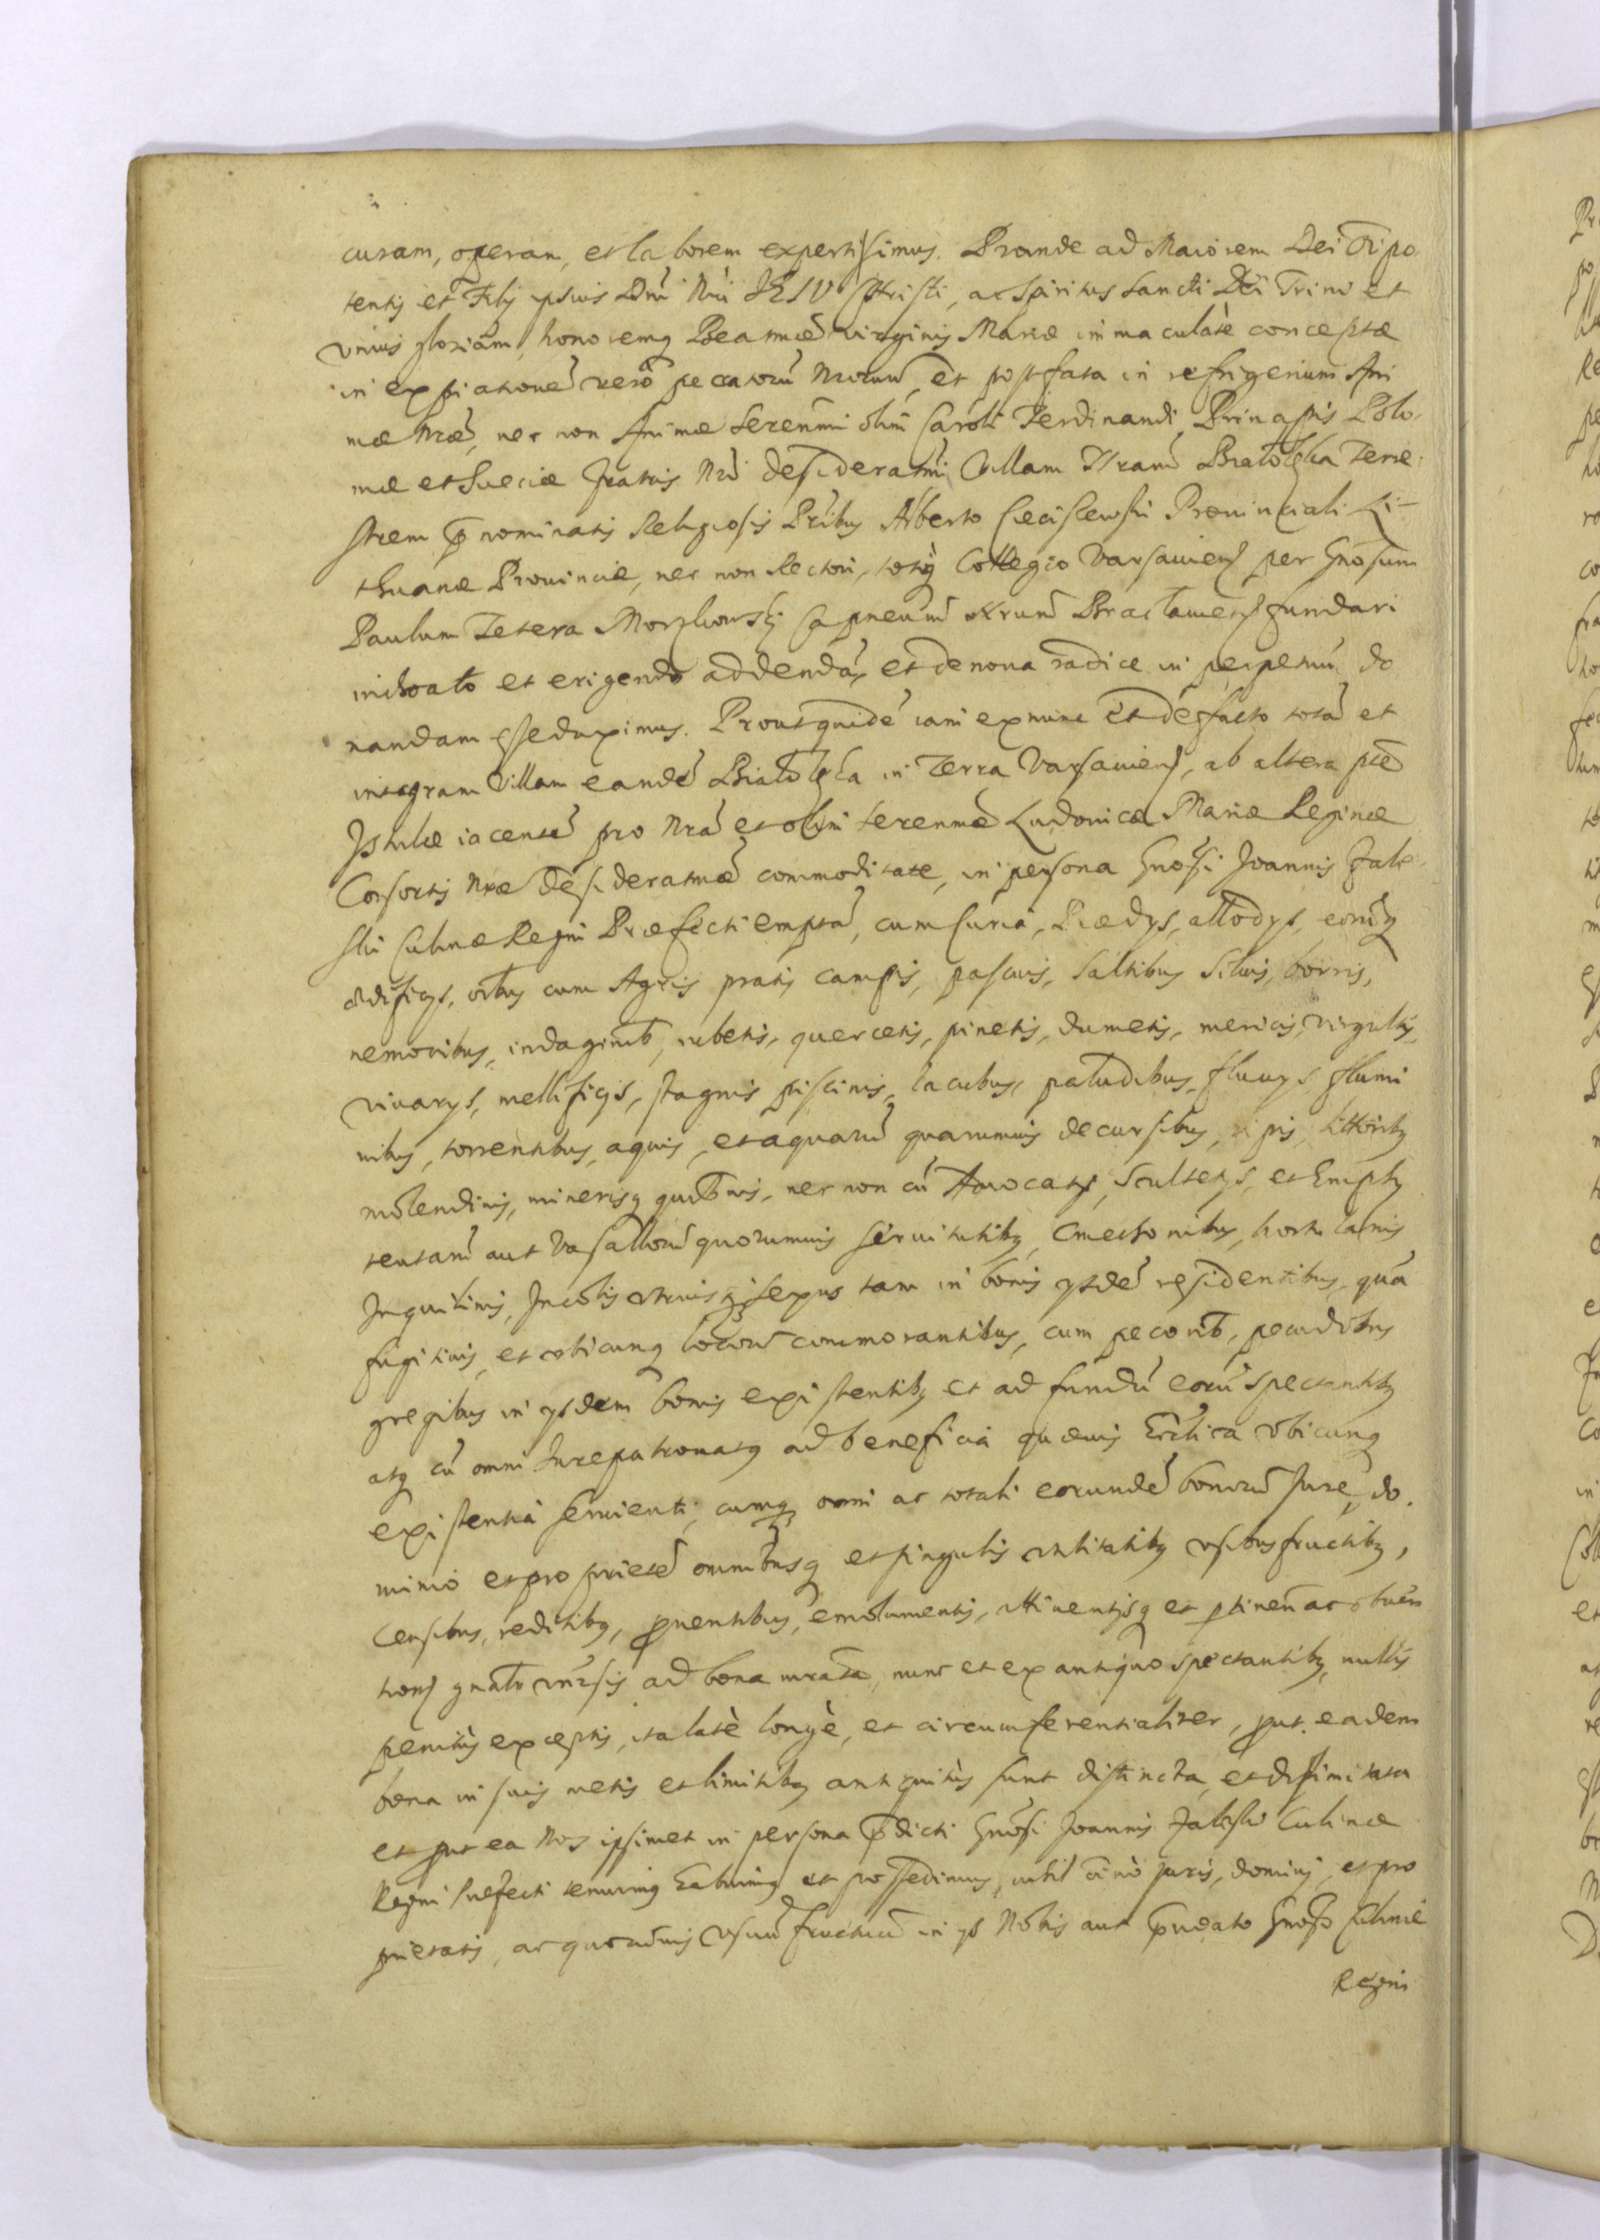 curam, operam, et laborem expertissimus. Proinde ad Maiorem Dei Oipo
tentis et Filij ipsius Dni Nri IESV Christi, ac Spiritus Sancti Dei Trini et
vnius gloriam, honoremq Beatmæ virginis Mariæ immaculatè conceptæ
in expiatione vero peccatorū Nrorum, et post fata in refrigerium Ani
mæ Nræ, nec non Animæ Serenmi olim Caroli Ferdinandi Principis Polo
niæ et Sueciæ fratris Nri desideratmi, Villam Nram Białołęka Terre
strem nominatis Religiosis Pribus Alberto Cieciszewski Prouinciali Li-
thuanæ Prouinciæ, nec non Rectori, totiq Collegio Varsauiens per Gnosum
Paulum Tetera Morzkowski Capneum Nrum Bracłauiens fundari
inchoato et erigendo addendā, et de noua radice in perpetuū do
nandam esse duximus. Prout quidē iam ex nunc et de facto totā et
integram Villam eandē Białołęka in Terra Varsauiens, ab altera pte
Istulæ iacentē pro Nra et olim Serenmæ Ludouicæ Mariæ Reginæ
Consortis Nræ desideratmæ commoditate, in persona Gnosi Joannis Zale
ski Culinæ Regni Præfecti emptā, cum Curia, Prædys, allodys, eorūq
ædificys, oibus cum Agris pratis campis, pascuis, Saltibus Siluis, borris,
nemoribus, indaginib, rubetis, quercetis, pinetis, dumetis, mericis, virgultis,
viuarys, mellificys, stagnis piscinis, lacubus, paludibus, fluuys flumi
nibus, torrentibus, aquis, et aquarū quarumuis decursibus, ripis, littoribq
molendinis, minerisq quibusuis, nec non cū Aduocatys, Scultetys, et Emphy
teutarū aut Vasallorū quorumuis seruitutibq, Cmethonibus, hortulanis
Inquilinis, Incolis vtriusq sexus tam in bonis ysdē residentibus, quā
fugitiuis, et vbicunq locorū commorantibus, cum pecorib, pecudibus
gregibus in ysdem bonis existentibq et ad fundū eorū spectantibq
atq cū omni Iurepatronatq ad beneficia quæuis Ecclica vbicunq
existentia seruienti, cumq omni ac totali eorundē bonorū Jure, do
minio et proprietē omnibusq et singulis vtilitatibq vsibus fructibq,
Censibus, reditibq, prouentibus, emolumentis, attinentysq et ptinen ac obuen
tions gnalr vniuersis ad bona mrata, nunc et ex antiquo spectantibq, nullis
penitùs exceptis, ita latè longè, et circumferentialiter, prout eadem
bona in suis metis et limitibq antiquitùs sunt distincta, et dislimitata
et prout ea Nos ipsimet in persona prædicti Gnosi Joannis Zaleski Culinæ
Regni Præfecti tenuimq habuimq et possedimus, nihil oino juris, dominij, et pro
prietatis, ac quorumuis vsuum fructuū in ys Nobis aut Gnoso Culinæ
Regni